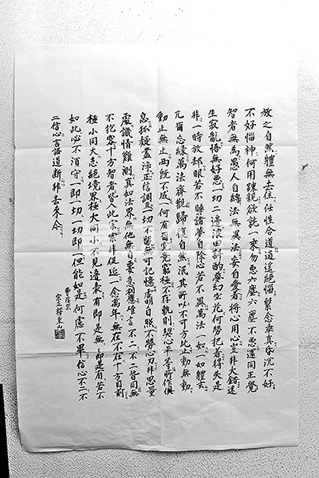 放之自然體無去住任性合道逍遙絕惱繫念乖真昏沉不好
不好惱神何用踈親欲趣一乘勿惡六塵六塵不惡還同正覺
智者無為愚人自縛法無異法妄自愛著將心用心豈非大錯迷
生寂亂悟無好惡一切二邊浪自斟酌夢幻空花何勞把捉得失是
非一時放却眼若不睡諸夢自除心若不異萬法一如一如體玄
兀爾忘緣萬法齊觀歸復自然泯其所以不可方比止動無動
動止無止兩既不成一何有爾究竟窮極不存軌則契心平等所作俱
息狐疑盡淨正信調直一切不留無可記憶虛明自照不勞心力非思量
處識情難測真如法界無他無自要急相應唯言不二不二皆同無
不包容十方智者皆入此宗宗非促延一念萬年無在不在十方目前
極小同大忘絕境界極大同小不見邊表有即是無無即是有若不
如此必不須守一即一切一切即一但能如是何慮不畢信心不二不
二信心言語道斷非去來今